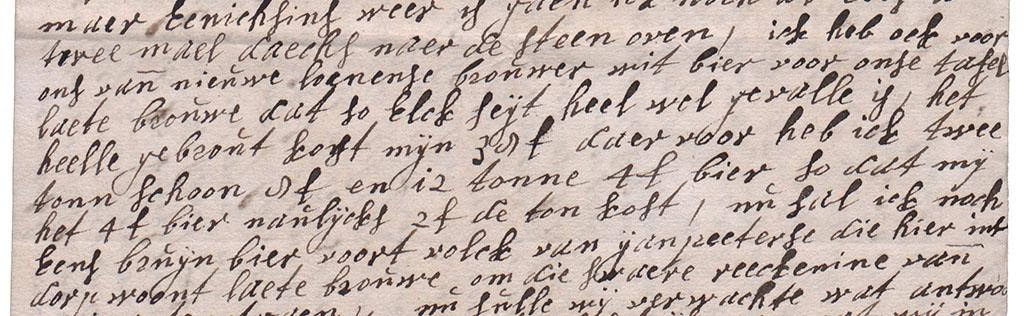 maer eenichsins weer is gaen ick noch al
twee mael daechs naer de steen oven, ick heb ock voor
ons vann nieuwe loenense brouwer wit bier voor onse tafel
laete brouwe dat so elck seijt heel wel gevalle is, het
heelle gebrout kost mijn 38 f daer voor heb ick twee
tonn schoon 8 f en 12 tonne 4 f bier so dat mij
het 4 f bier naulijcks 2 f de ton kost, nu sal ick noch
eens bruijn bier voort volck van ijanpeeterse die hier int
dorp woont laete brouwe om die swaere reeckenine vann
nu sulle wij verwachte wat antwoo